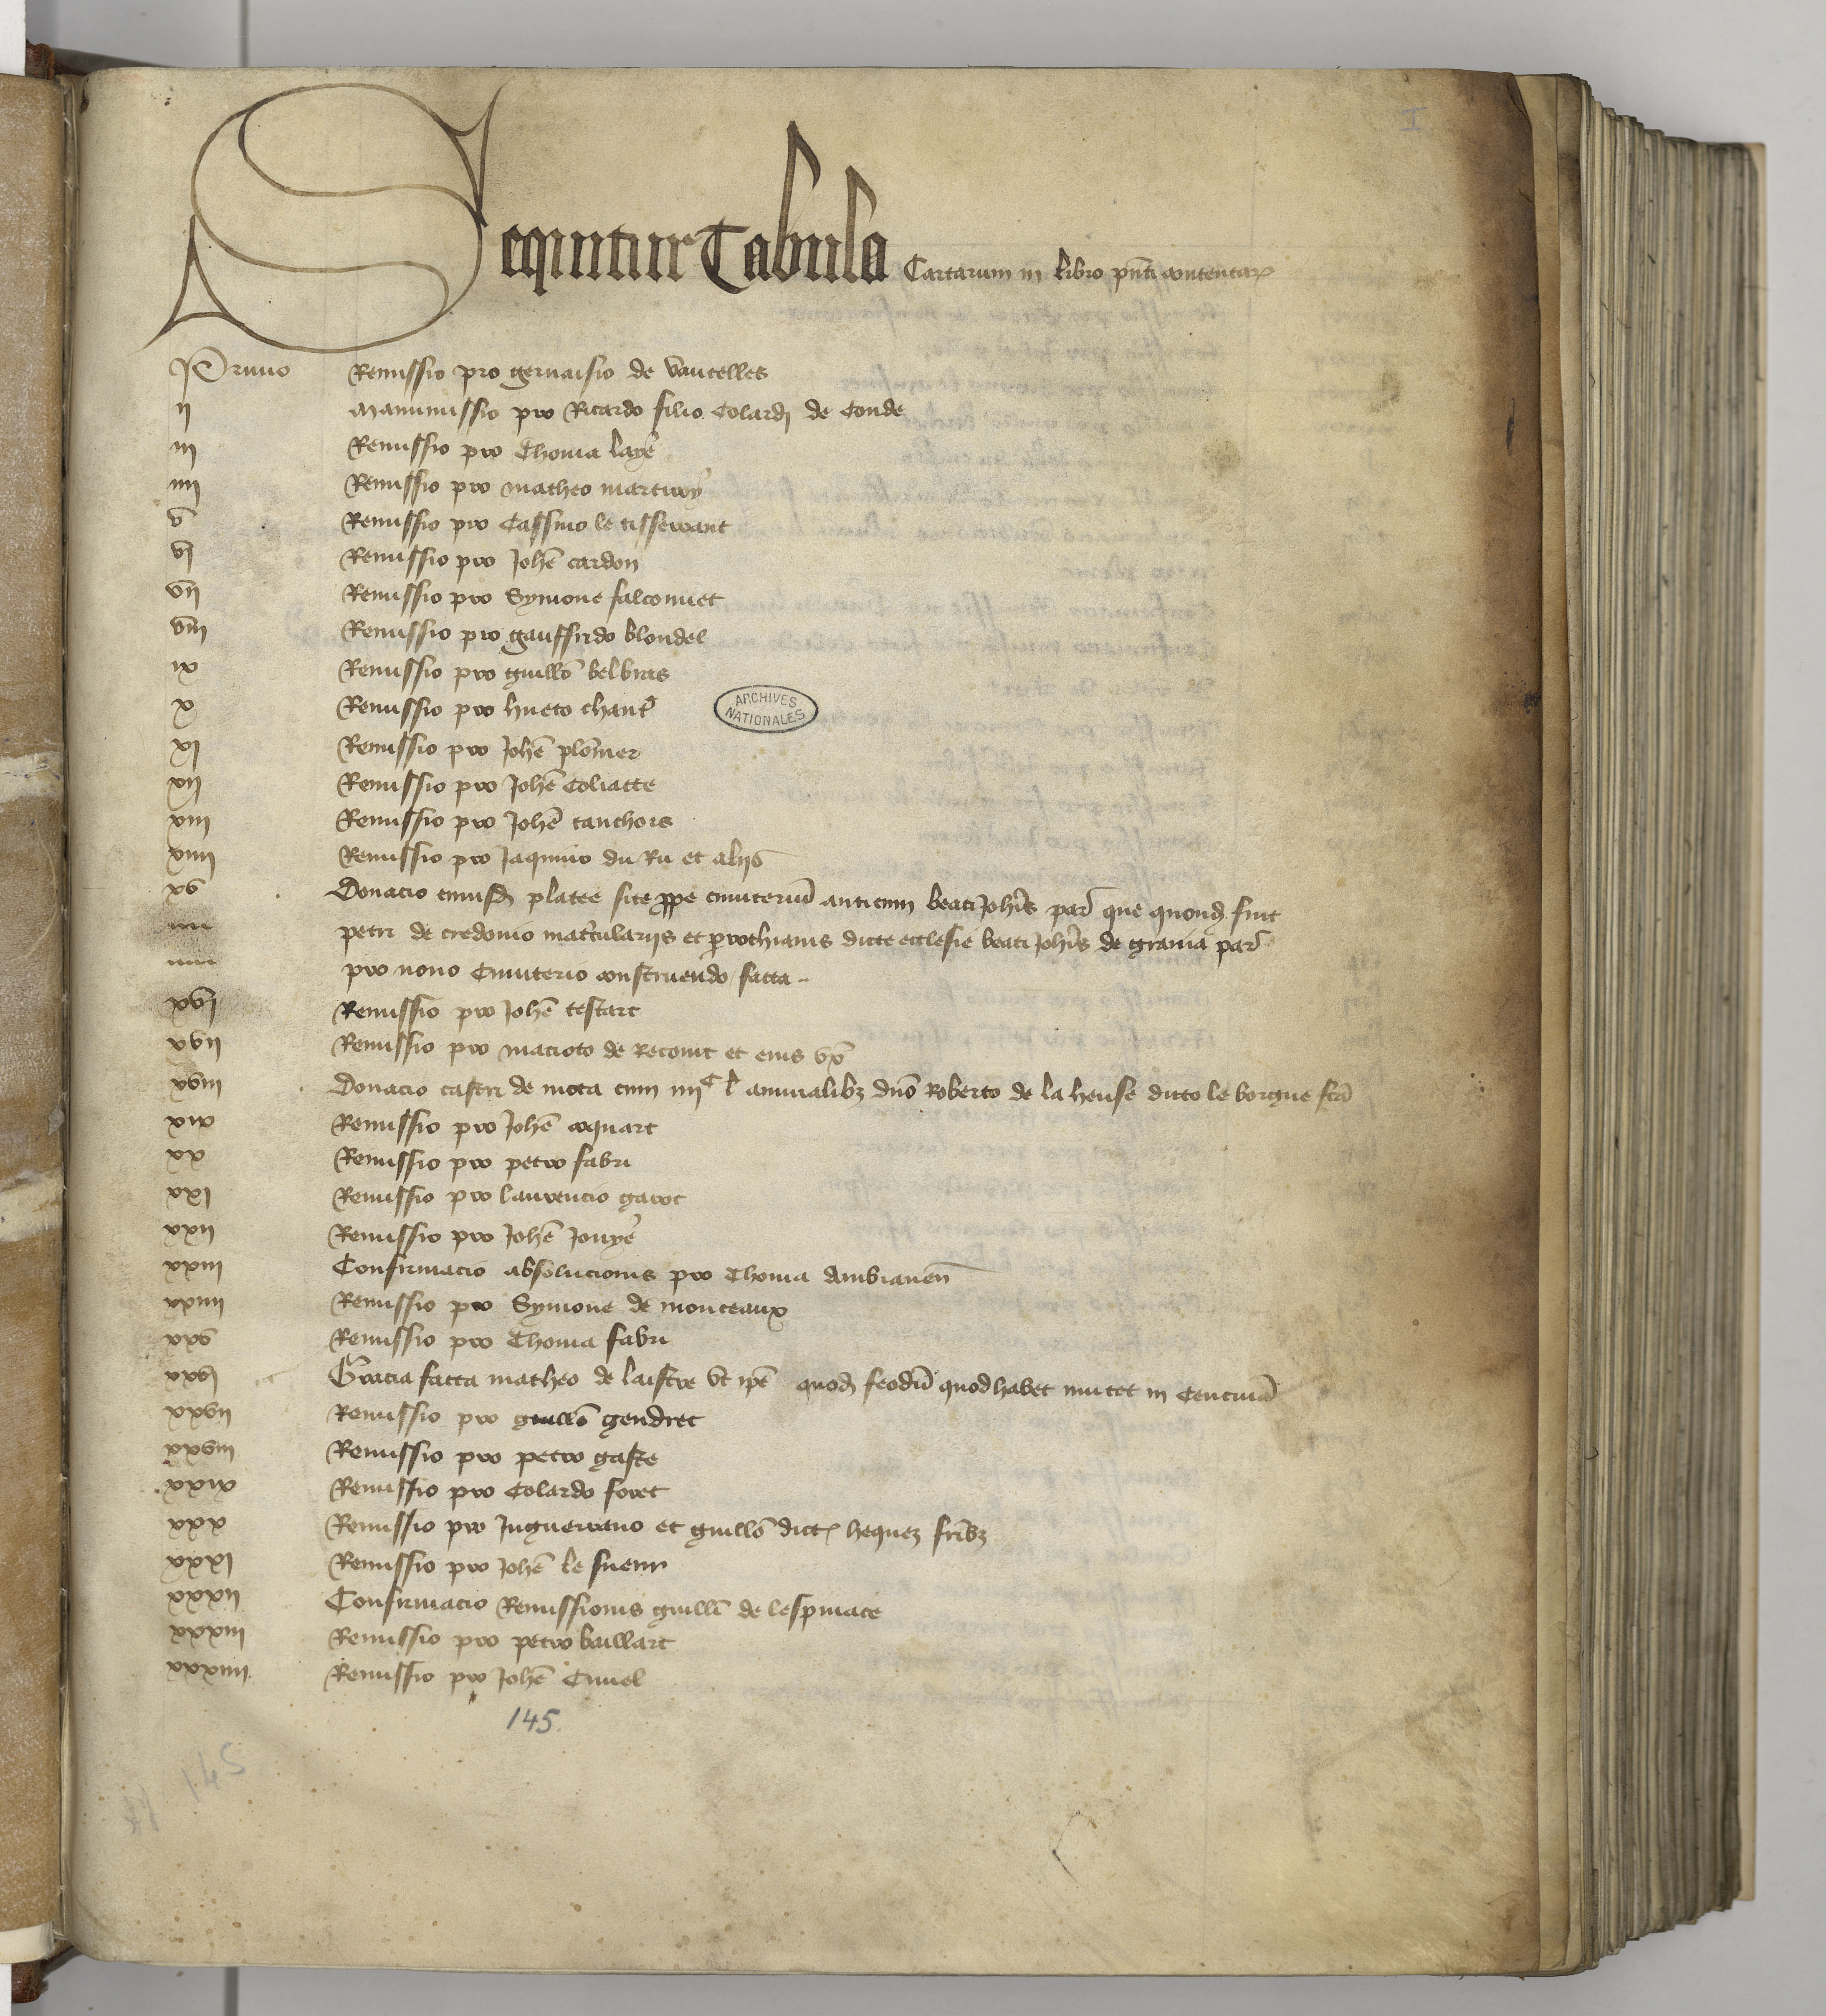 I
Sequitur Tabula Cartarum in libro pñti contentar
Primo Remissio pro gervaisio de Vaucelles
ii Manumissio pro Ricardo filio Colardi de Conde
iii Remissio pro Thoma laye
iiii Remissio pro matheo martiroy
v Remissio pro Cassino le tisserrant
vi Remissio pro Johẽ cardon
vii Remissio pro Symone falconnet
viii Remissio pro gauffrido blondel
ix Remissio pro guillõ belbras
x Remissio pro hueto chant
ARCHIVES NATIONALES
xi Remissio pro Johẽ plõmer
xii Remissio pro Johẽ Coliatte
xiii Remissio pro Johẽ canchors
xiiii Remissio pro Jaquino du Ru et aliis
xv Donacio cuiusd platee site prope cimiteriũ anticum beati Johis par que quond fuit
petri de credonio matricularijs et parrochianis dicte ecclesie beati Johis de gravia par
pro novo Cimiterio construendo facta
xvi Remissio pro Johẽ testart
xvii Remissio pro macioto de Recouit et eius vx
xviii Donacio castri de mota cum iiii c l annualibz dño Roberto de la heuse dicto le borgne
xix Remissio pro Johẽ coquart
xx Remissio pro petro fabri
xxi Remissio pro laurencio garot
xxii Remissio pro Johẽ Jouye
xxiii Confirmacio absolucionis pro Thoma Ambianeñ
xxiiii Remissio pro Symone de monceaux
xxv Remissio pro Thoma fabri
xxvi Gracia facta matheo de laistre vt ipẽ quod feodũ quod habet mutet in Censivã
xxvii Remissio pro guillõ gendret
xxviii Remissio pro petro gaste
xxix Remissio pro Colardo foret
xxx Remissio pro Inguerrano et guillõ dict hequez fribz
xxxi Remissio pro Johẽ le sueur
xxxii Confirmacio Remissionis guilli de lespinace
xxxiii Remissio pro petro baillart
xxxiiii Remissio pro Johẽ Cruel
145
145